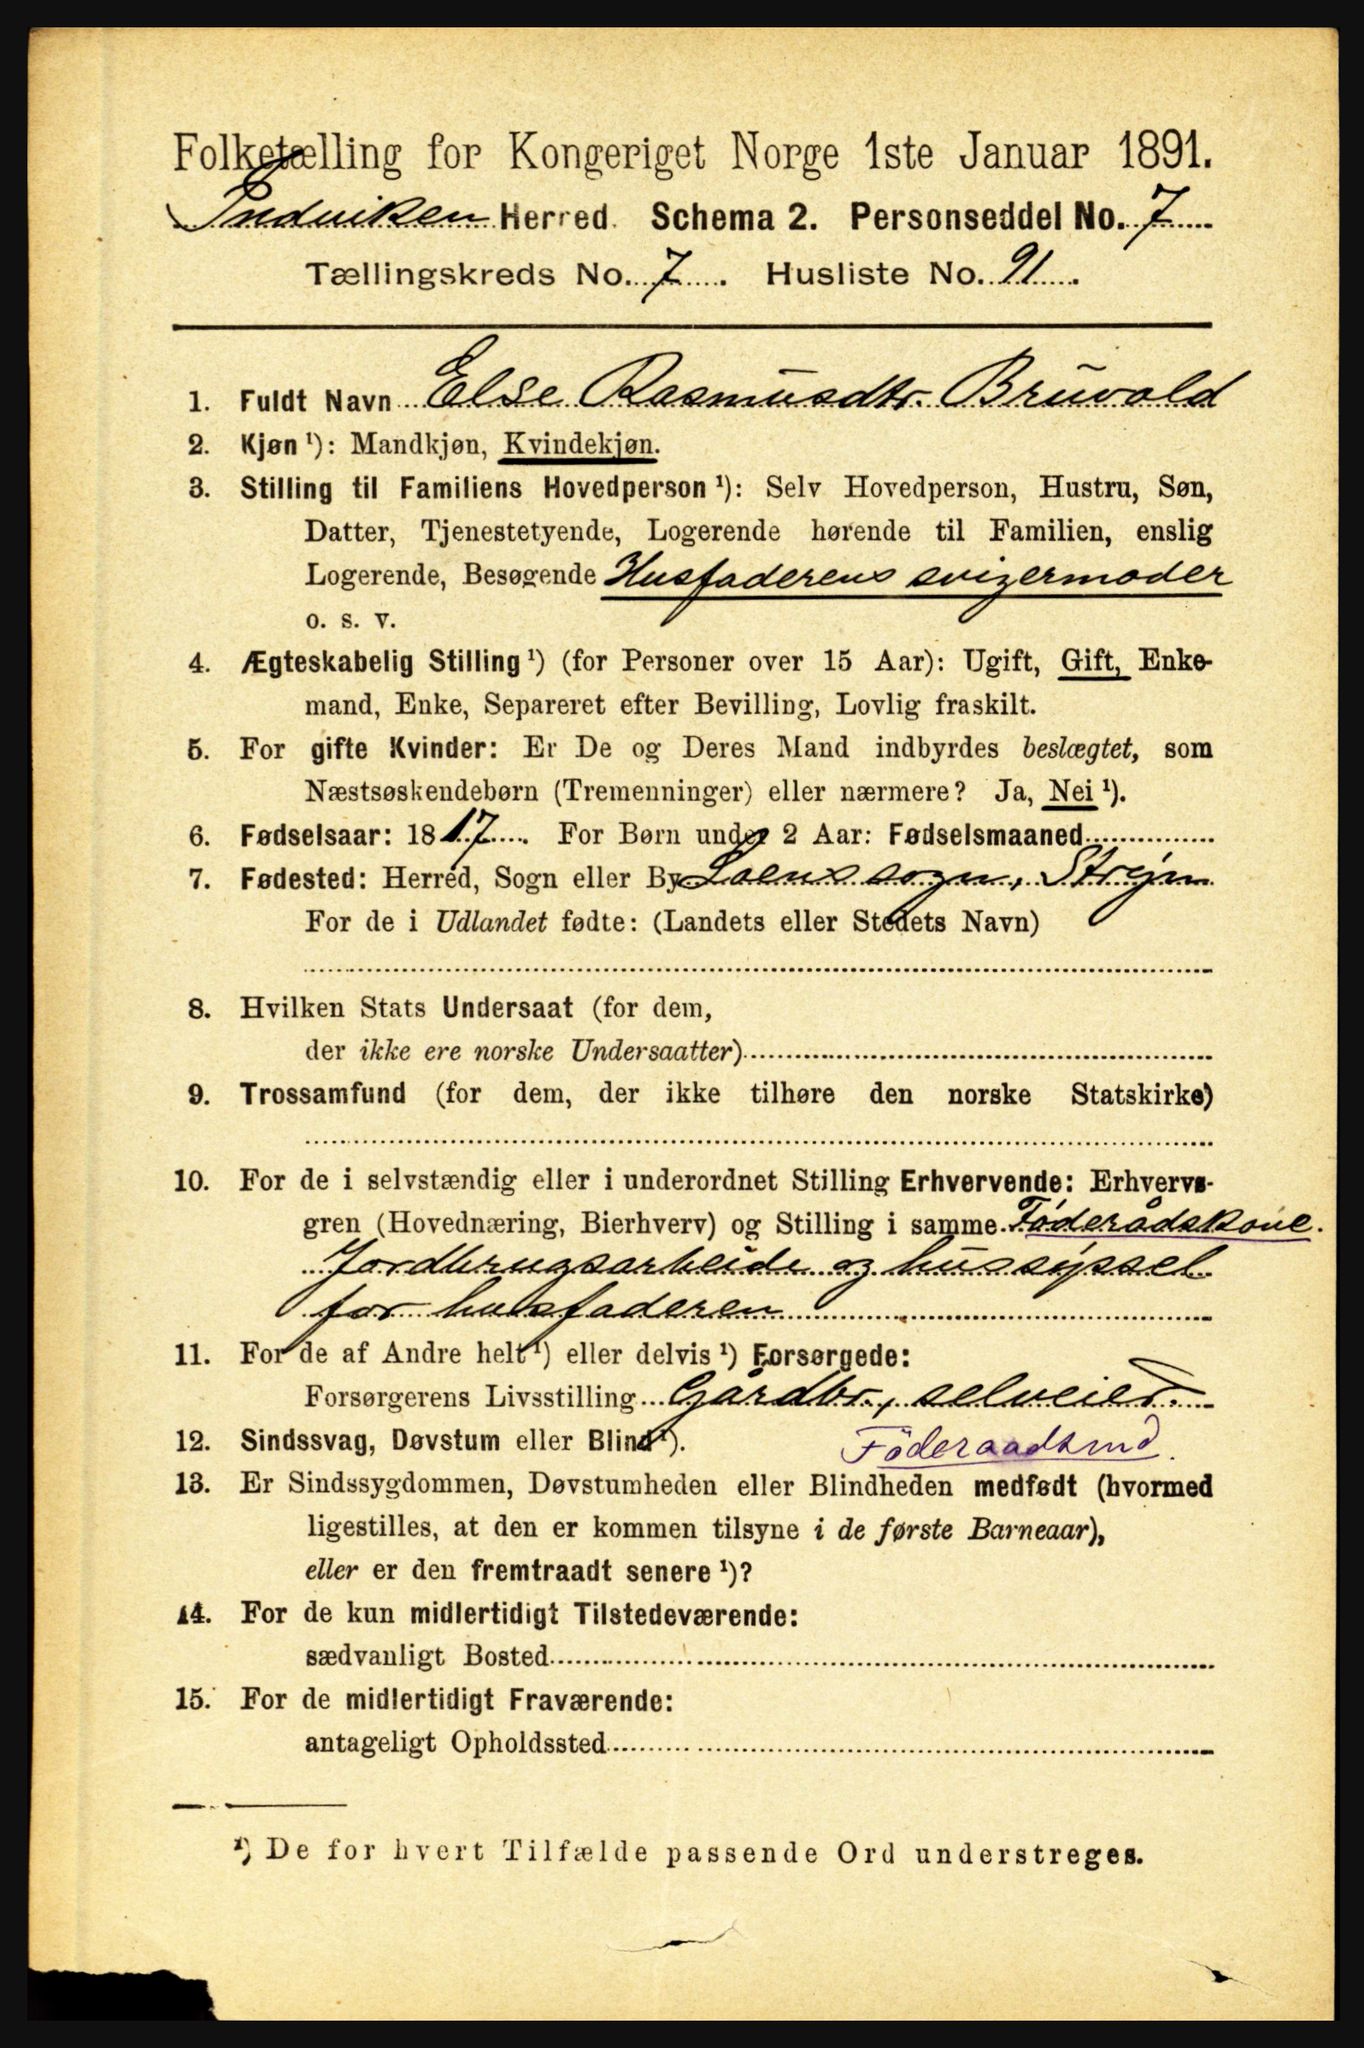 Folketælling for Kongeriget Norge 1ste Januar 1891.
Indviken Herred. Schema 2. Personseddel No. 7
Tællingskreds No. 7. Husliste No. 91.
1. Fuldt Navn Else Rasmusdtr. Bruvold
2. Kjøn ¹): Mandkjøn, Kvindekjøn.
3. Stilling til Familiens Hovedperson ¹): Selv Hovedperson, Hustru, Søn,
Datter, Tjenestetyende, Logerende hørende til Familien, enslig
Logerende, Besøgende Husfaderens svigermoder
o. s. v.
4. Ægteskabelig Stilling ¹) (for Personer over 15 Aar): Ugift, Gift, Enke-
mand, Enke, Separeret efter Bevilling, Lovlig fraskilt.
5. For gifte Kvinder: Er De og Deres Mand indbyrdes beslægtet, som
Næstsøskendebørn (Tremenninger) eller nærmere? Ja, Nei ¹).
6. Fødselsaar: 1817. For Børn under 2 Aar: Fødselsmaaned
7. Fødested: Herred, Sogn eller By Loens sogn, Strÿn
For de i Udlandet fødte: (Landets eller Stedets Navn)
8. Hvilken Stats Undersaat (for dem,
der ikke ere norske Undersaatter)
9. Trossamfund (for dem, der ikke tilhøre den norske Statskirke)
10. For de i selvstændig eller i underordnet Stilling Erhvervende: Erhvervs-
gren (Hovednæring, Bierhverv) og Stilling i samme Föderådskone.
Jordbrugsarbeide og hussÿssel
for husfaderen
11. For de af Andre helt ¹) eller delvis ¹) Forsørgede:
Forsørgerens Livsstilling Gårdbr., selveier.
12. Sindssvag, Døvstum eller Blind ¹). Föderaadsmd.
13. Er Sindssygdommen, Døvstumheden eller Blindheden medfødt (hvormed
ligestilles, at den er kommen tilsyne i de første Barneaar),
eller er den fremtraadt senere ¹)?
14. For de kun midlertidigt Tilstedeværende:
sædvanligt Bosted
15. For de midlertidigt Fraværende:
antageligt Opholdssted
¹) De for hvert Tilfælde passende Ord understreges.